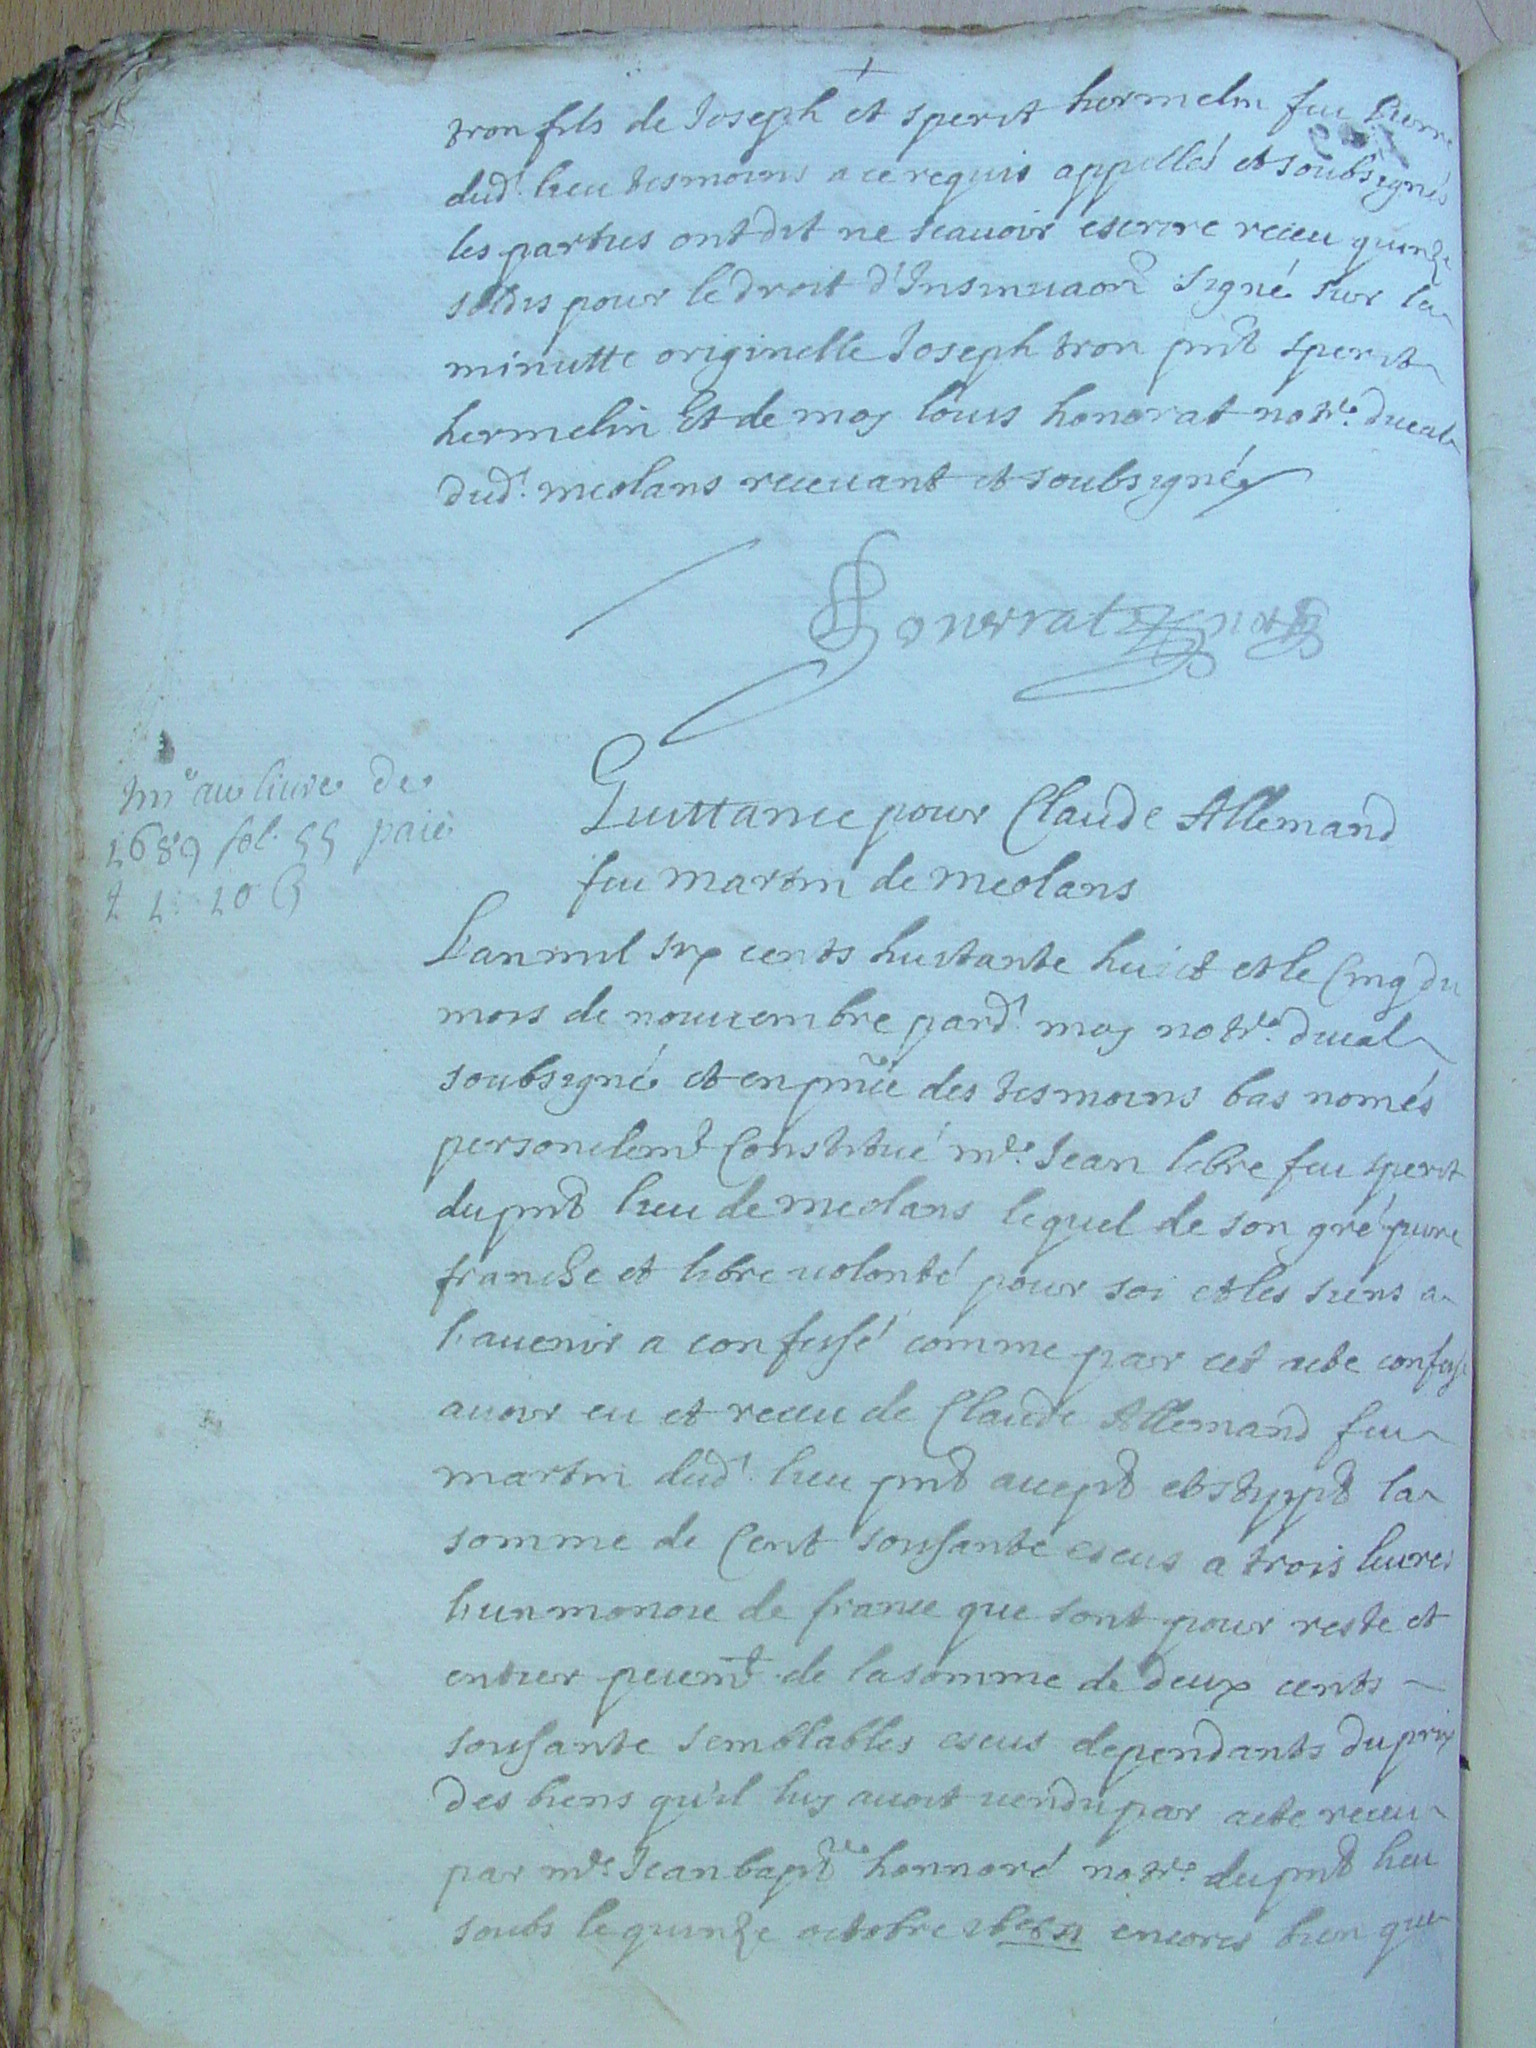 tron fils de Joseph et sperit hermelin feu Pierre
dud.t lieu tesmoins a ce requis appellés et soubsignés
les parties ont dit ne scauoir escrire receu quinze
soldis pour le droit d'Insinuaon signé sur la
minutte originelle Joseph tron pnt sperit
hermelin Et de moy louis honorat notre. ducal
dud.t meolans receuant et soubsigné
Honnorat not
Inré au liure de
1689 fol. 55 paié
1: 10
Quittance pour Claude Allemand
feu martin de meolans
L'an mil six cents huitante huict et le Cinq du
mois de nouuembre pard.t moy notre. ducal
soubsigné et en pnce des tesmoins bas només
personelemt Constitué mre. Jean libre feu sperit
du pnt lieu de meolans lequel de son gré pure
franche et libre uolonté pour soi et les siens a
l'auenir a confessé comme par cet acte confesse
auoir eu et receu de Claude Allemand feu
martin dud.t lieu pnt accept et stippt la
somme de Cent soisante escus a trois liures
l'un monoie de france que sont pour reste et
entier peiemt de la somme de deux cents
soisante semblables escus dependants du prix
des biens qu'il luy auoit uendu par acte receu
par mre. Jean bapte honnoré notre. du pnt lieu
soubs le quinze octobre encores bien que